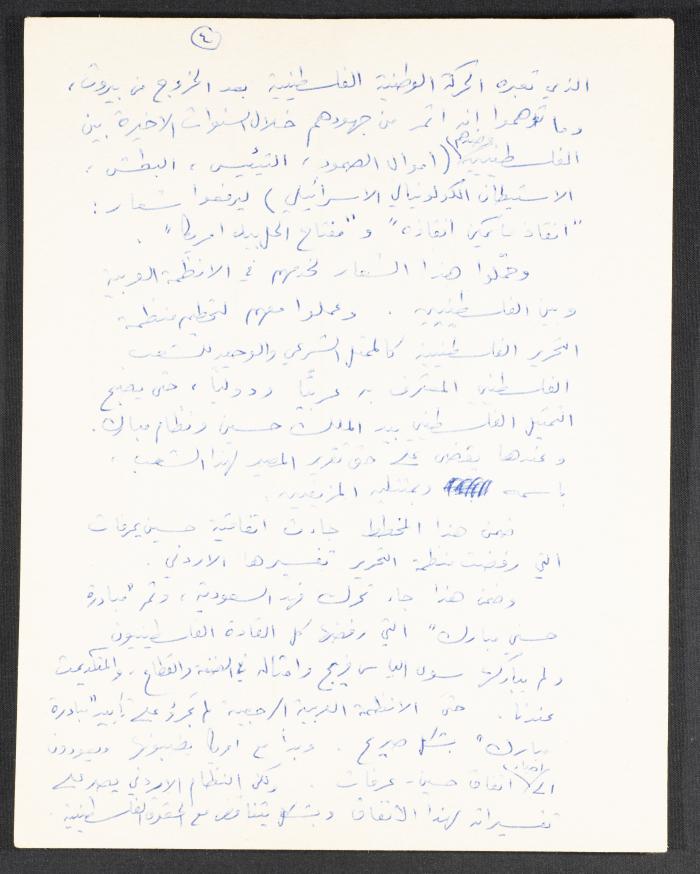 ٤
الذي تعبره الحركة الوطنية الفلسطينية بعد الخروج من بيروت،
وما توهموا انه اثمر من جهودهم خلال السنوات الاخيرة بين
الفلسطينيين (اموال الصمود، التيئيس، البطش،
الاستيطان الكولونيالي الاسرائيلي) ليرفعوا شعار:
"انقاذ ما يمكن انقاذه" و"مفتاح الحل بيد امريكا".
وحمّلوا هذا الشعار لخدمهم في الانظمة العربية
وبين الفلسطينيين. وعملوا معهم لتحطيم منظمة
التحرير الفلسطينية كالممثل الشرعي والوحيد للشعب
الفلسطيني المعترف به عربيًا ودوليًا، حتى يصبح
التمثيل الفلسطيني بيد الملك حسين ونظام مبارك.
وعندها يقضى على حق تقرير المصير لهذا الشعب،
باسمه وبمثليه المزيفين.
ضمن هذا المخطط جاءت اتفاقية حسين عرفات
التي رفضت منظمة التحرير تفسيرها الاردني.
وضمن هذا جاء تحرك فهد السعودية، وتم "مبادرة
حسني مبارك" التي رفضها كل القادة الفلسطينيون
ولم يباركها سوى الياس فريج وامثاله في الضفة والقطاع، و
عندنا. حتى الانظمة العربية الرجعية لم تجرؤ على تأييد "مبادرة
مبارك" بشكل صريح. وبدأ مع امريكا يضيعونها ويعودون
الى اتفاق حسين - عرفات. ولكن النظام الاردني يصر على
تفسيراته لهذا الاتفاق وبشكل يتناقض مع الحقوق الفلسطينية